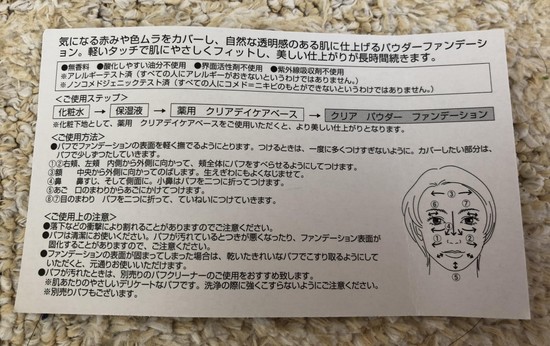 気になる赤みや色ムラをカバーし、自然な透明感のある肌に仕上げるパウダーファンデーション。軽いタッチで肌にやさしくフィットし、美しい仕上がりが長時間続きます。
●無香料 ●酸化しやすい油分不使用 ●界面活性剤不使用 ●紫外線吸収剤不使用
※アレルギーテスト済（すべての人にアレルギーがおきないというわけではありません。）
※ノンコメドジェニックテスト済（すべての人にコメド＝ニキビのもとができないというわけではありません。）
<ご使用ステップ>
化粧水 → 保湿液 → 薬用 クリアデイケアベース → クリア パウダー ファンデーション
※化粧下地として、薬用 クリアデイケアベースをご使用いただくと、より美しい仕上がりとなります。
<ご使用方法>
●パフでファンデーションの表面を軽く撫でるようにとります。つけるときは、一度に多くつけすぎないように。カバーしたい部分は、
パフで少しずつたしていきます。
①②右頬、左頬 内側から外側に向かって、頬全体にパフをすべらせるようにしてつけます。
③額 中央から外側に向かってのばします。生えぎわにもよくなじませて。
④鼻 鼻すじ、そして側面に。小鼻はパフを二つに折ってつけます。
⑤あご 口のまわりからあごにかけてつけます。
⑥⑦目のまわり パフを二つに折って、ていねいにつけていきます。
<ご使用上の注意>
●落下などの衝撃により割れることがありますのでご注意ください。
●パフは清潔にお使いください。パフが汚れているとつきが悪くなったり、ファンデーション表面が
固化することがありますので、ご注意ください。
●ファンデーションの表面が固まってしまった場合は、乾いたきれいなパフでこすり取るようにして
いただくと、元通りお使いいただけます。
●パフが汚れたときは、別売りのパフクリーナーのご使用をおすすめ致します。
※肌あたりのやさしいデリケートなパフです。洗浄の際に強くこすらないようにご注意ください。
※別売りパフもございます。
③
⑥
⑦
④
①
②
⑤